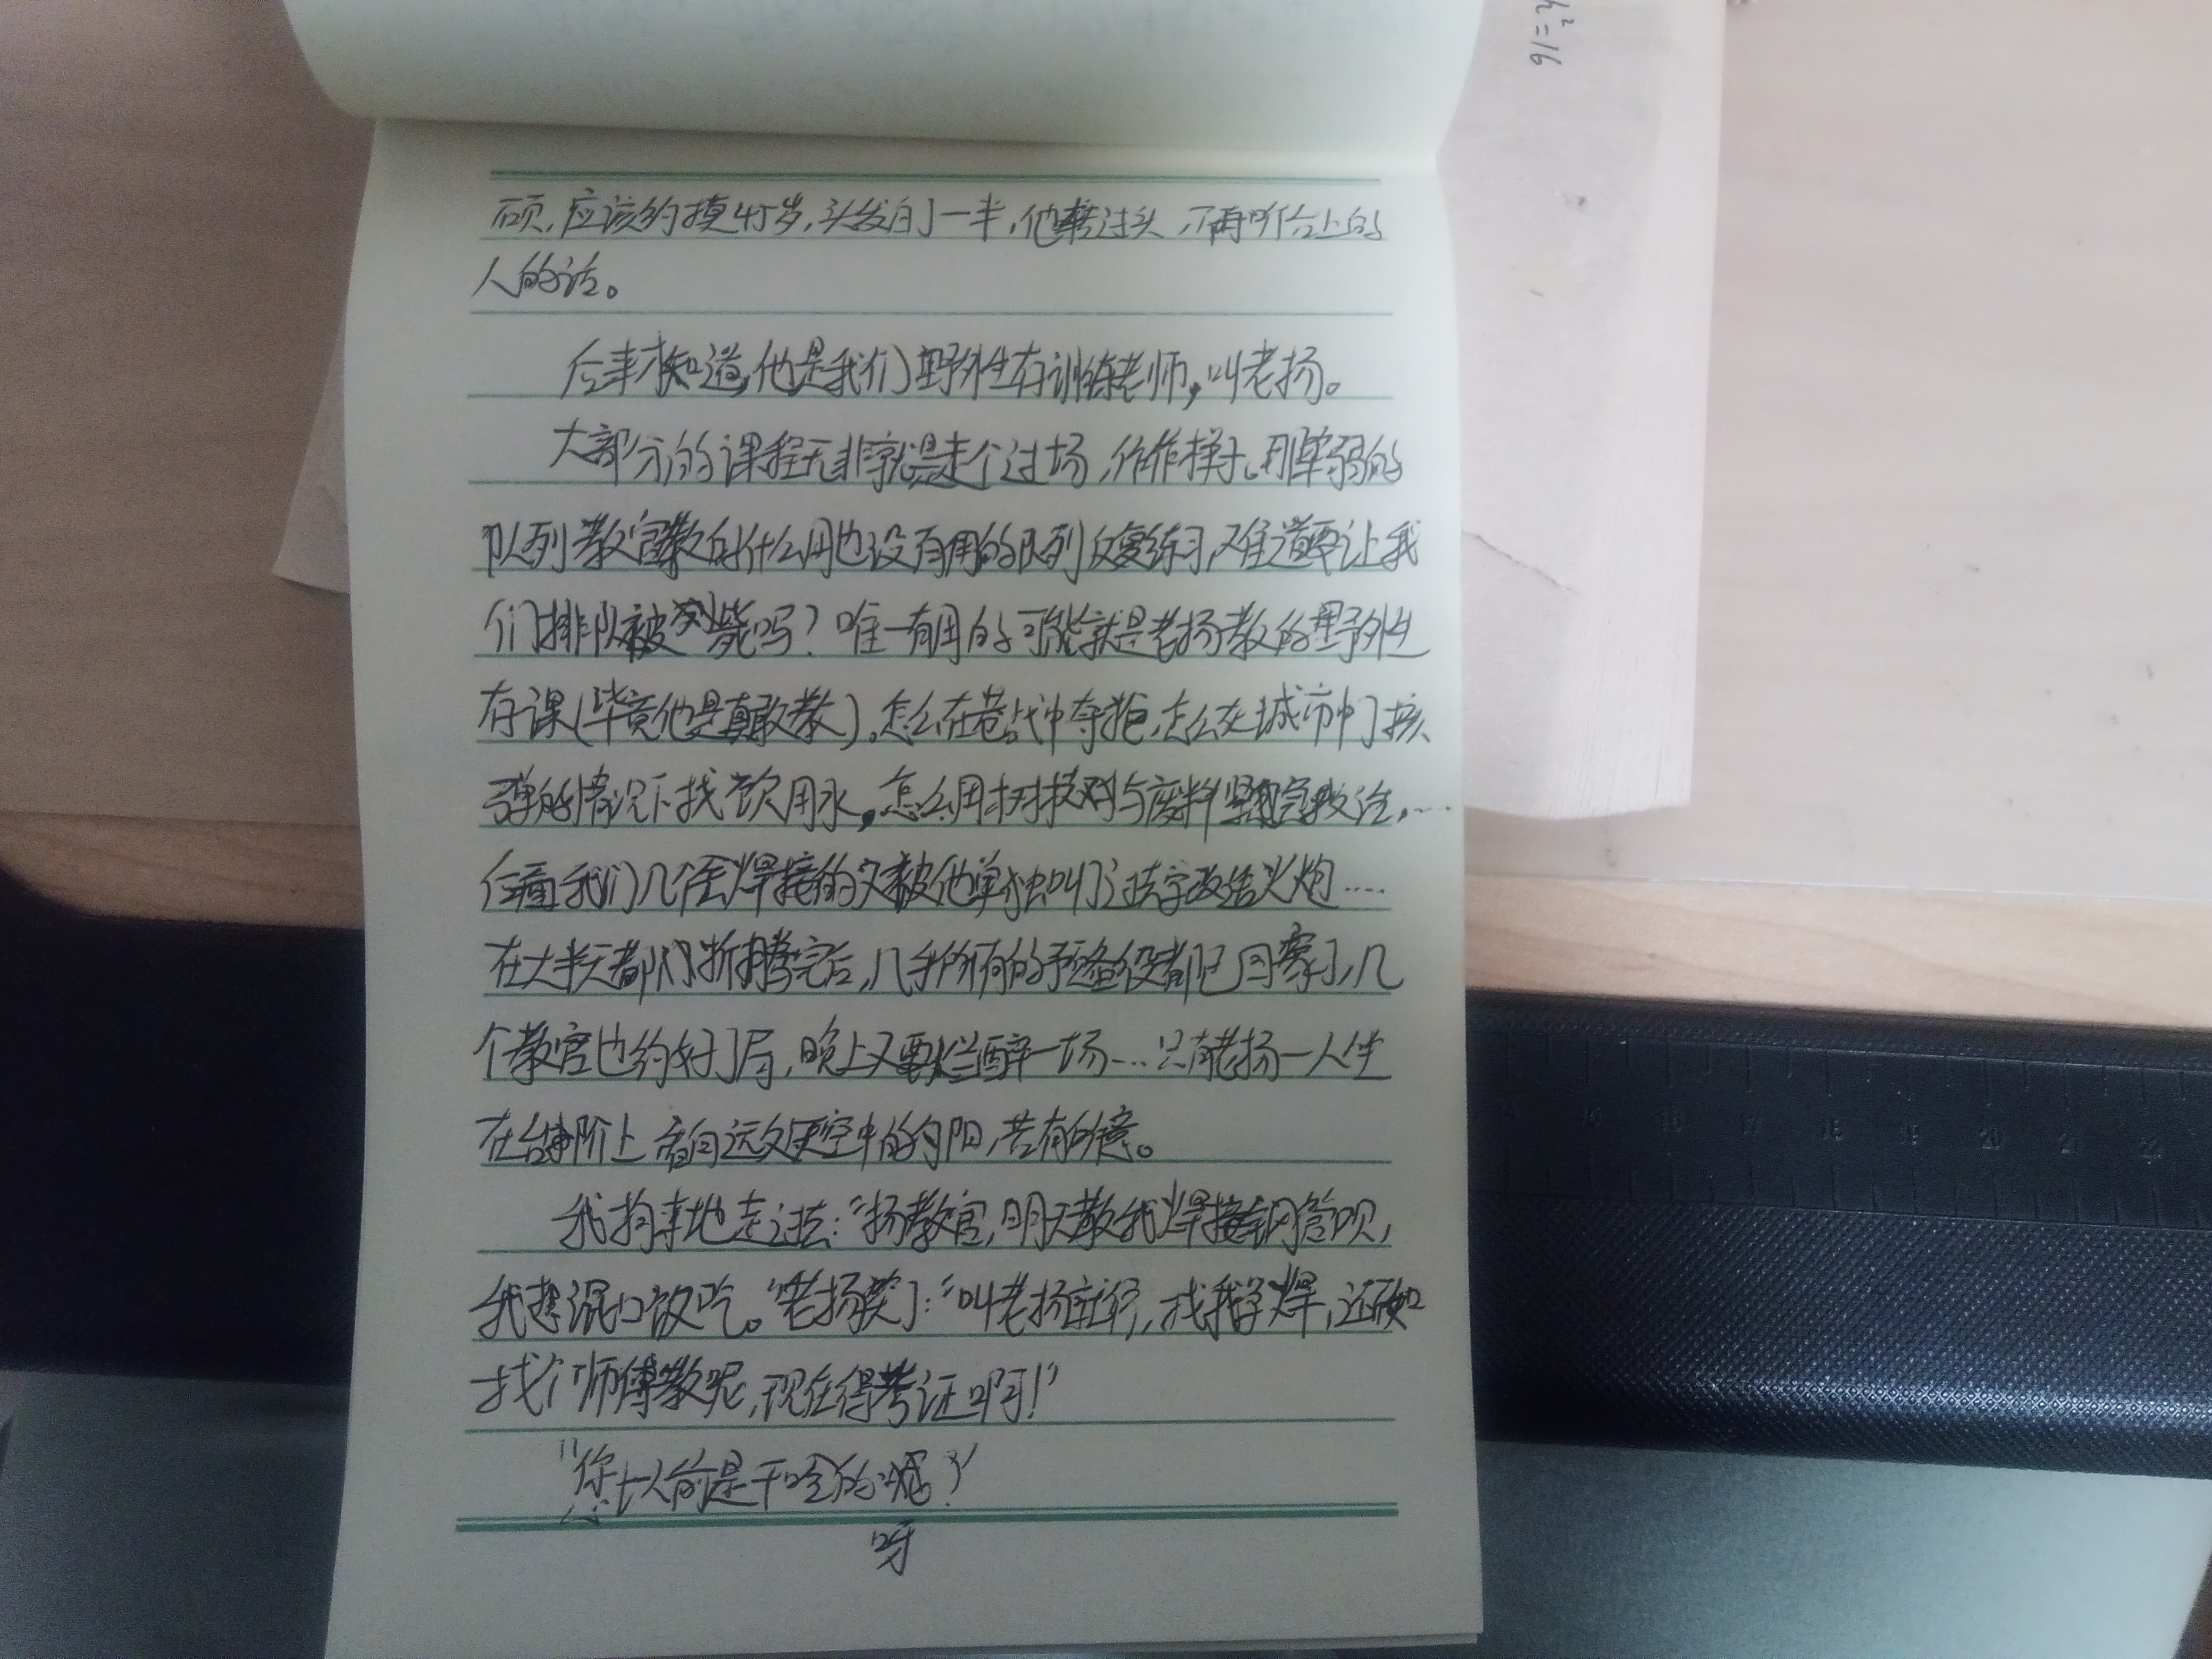 h²=16
硕,应该约摸45岁,头发白了一半,他转过头,不再听台上的
人的话。
后来才知道,他是我们野外生存训练老师,叫老扬。
大部分的课程无非就是走个过场,作作样子。那羸弱的
队列教官教的什么用也没有用的队列反复练习,难道要让我
们排队被列毙吗?唯一有用的可能就是老扬教的野外生
存课(毕竟他是真敢教)。怎么在巷战中夺枪,怎么在城市中了核
弹的情况下找饮用水,怎么用树枝与废料紧急救治,……
后面我们几个会焊接的又被他单独叫了过去学改造火炮……
在大半天都折腾完后,几乎所有的预备役都已回寝了,几
个教官也约好了局,晚上又要烂醉一场……只有老扬一人坐
在台阶上看向远处天空中的夕阳,若有所意。
我拘束地走过去:“扬教官,明天教我焊接钢管呗,
我想混口饭吃。”老扬笑了:“叫老扬就行,找我学焊,还不如
找个师傅教呢,现在得考证啊!”
“您以前是干啥的呀?”